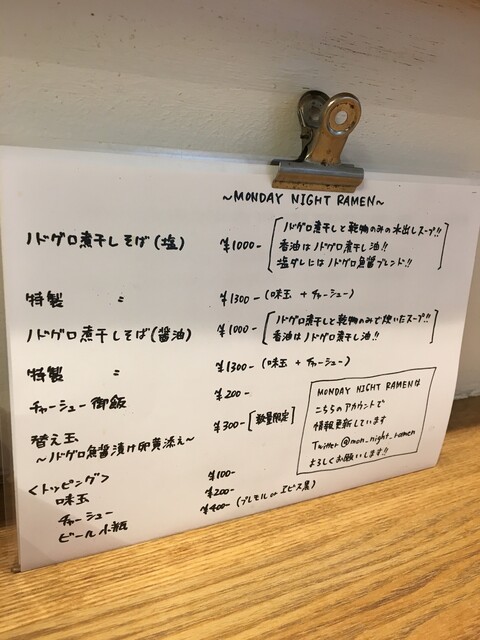 ~MONDAY NIGHT RAMEN~
ノドグロ煮干しそば(塩) ¥1000-
ノドグロ煮干しと乾物のみの水出しスープ!!
香油はノドグロ煮干し油!!
塩ダレにはノドグロ魚醤ブレンド!!
特製 〃 ¥1300-(味玉 + チャーシュー)
ノドグロ煮干しそば(醤油) ¥1000-
ノドグロ煮干しと乾物のみで炊いたスープ!!
香油はノドグロ煮干し油!!
特製 〃 ¥1300-(味玉 + チャーシュー)
チャーシュー御飯 ¥200-
替え玉 ¥300-[数量限定]
~ノドグロ魚醤漬け卵黄添え~
<トッピング>
味玉 ¥100-
チャーシュー ¥200-
ビール小瓶 ¥400-(プレモル or エビス黒)
MONDAY NIGHT RAMENは
こちらのアカウントで
情報更新しています
Twitter @mon_night_ramen
よろしくお願いします!!